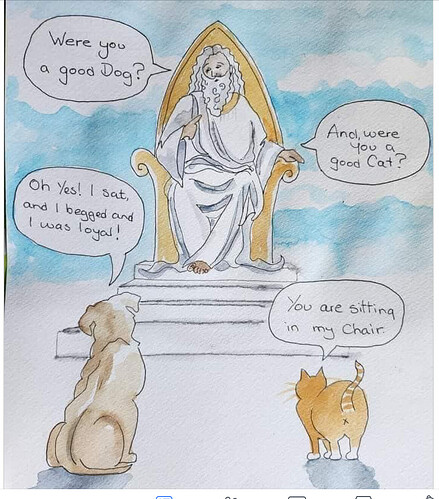 Were you
a good Dog?
And, were
you a
good Cat?
Oh Yes! I sat,
and I begged and
I was loyal!
You are sitting
in my Chair